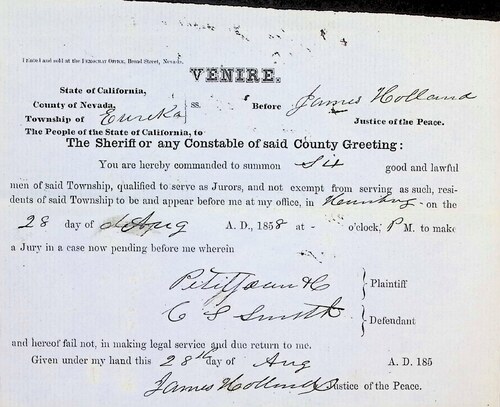 Printed and sold at the DEMOCRAT OFFICE, Broad Street, Nevada.
VENIRE.
State of California,
County of Nevada, } ss. Before James Holland
Township of Eureka Justice of the Peace.
The People of the State of California, to
The Sheriff or any Constable of said County Greeting:
You are hereby commanded to summon Six good and lawful
men of said Township, qualified to serve as Jurors, and not exempt from serving as such, resi-
dents of said Township to be and appear before me at my office, in - on the
28 day of Aug A. D., 1858 at - o'clock, P M. to make
a Jury in a case now pending before me wherein
Petitjean & C } Plaintiff
C S Smith } Defendant
and hereof fail not, in making legal service and due return to me.
Given under my hand this 28th day of Aug A. D. 185
James Holland Justice of the Peace.